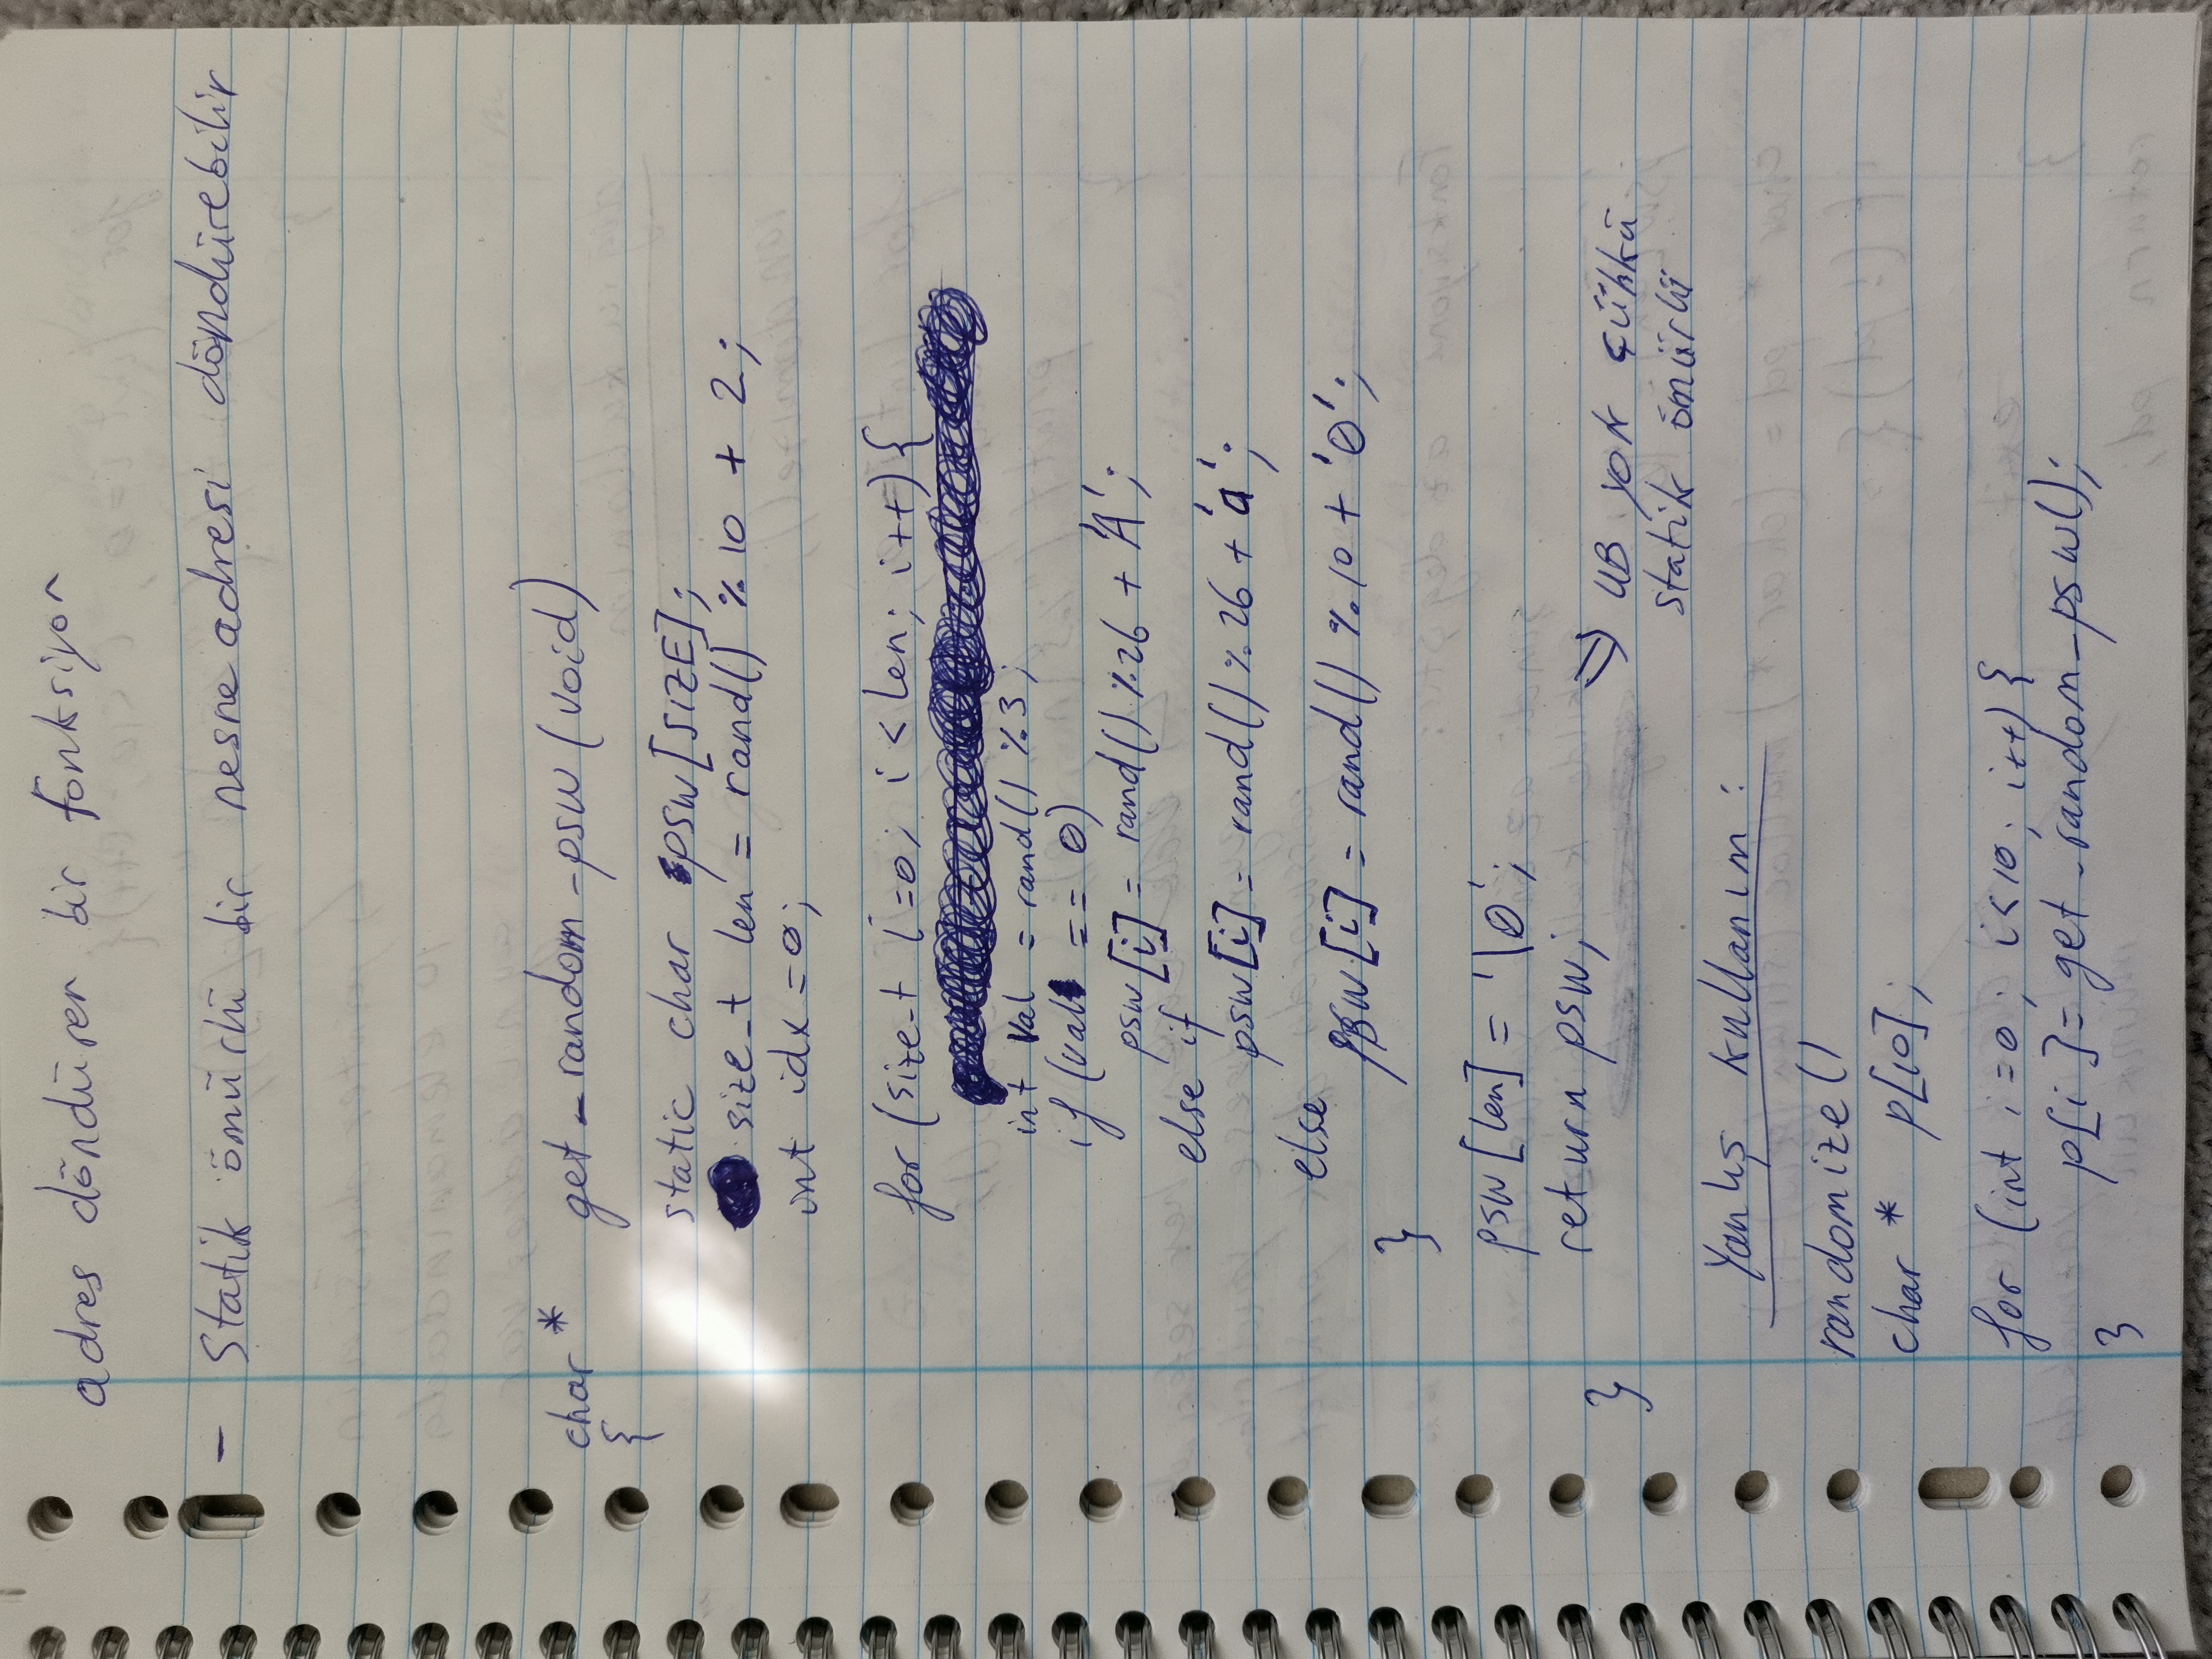 adres döndüren bir fonksiyon
- Statik ömürlü bir nesne adresi döndürebilir
char * get_random_psw (void)
{
static char psw[SIZE];
size_t len = rand() % 10 + 2;
int idx = 0;
for (size_t i=0; i < len; i++){
int val = rand() % 3;
if (val == 0)
psw[i] = rand() % 26 + 'A';
else if
psw[i] = rand() % 26 + 'a';
else
psw[i] = rand() % 10 + '0';
}
psw[len] = '\0';
return psw;
} => UB yok çünkü
statik ömürlü
Yanlış kullanım :
randomize()
char * p[10];
for (int i=0; i<10; i++) {
p[i] = get_random_psw();
}